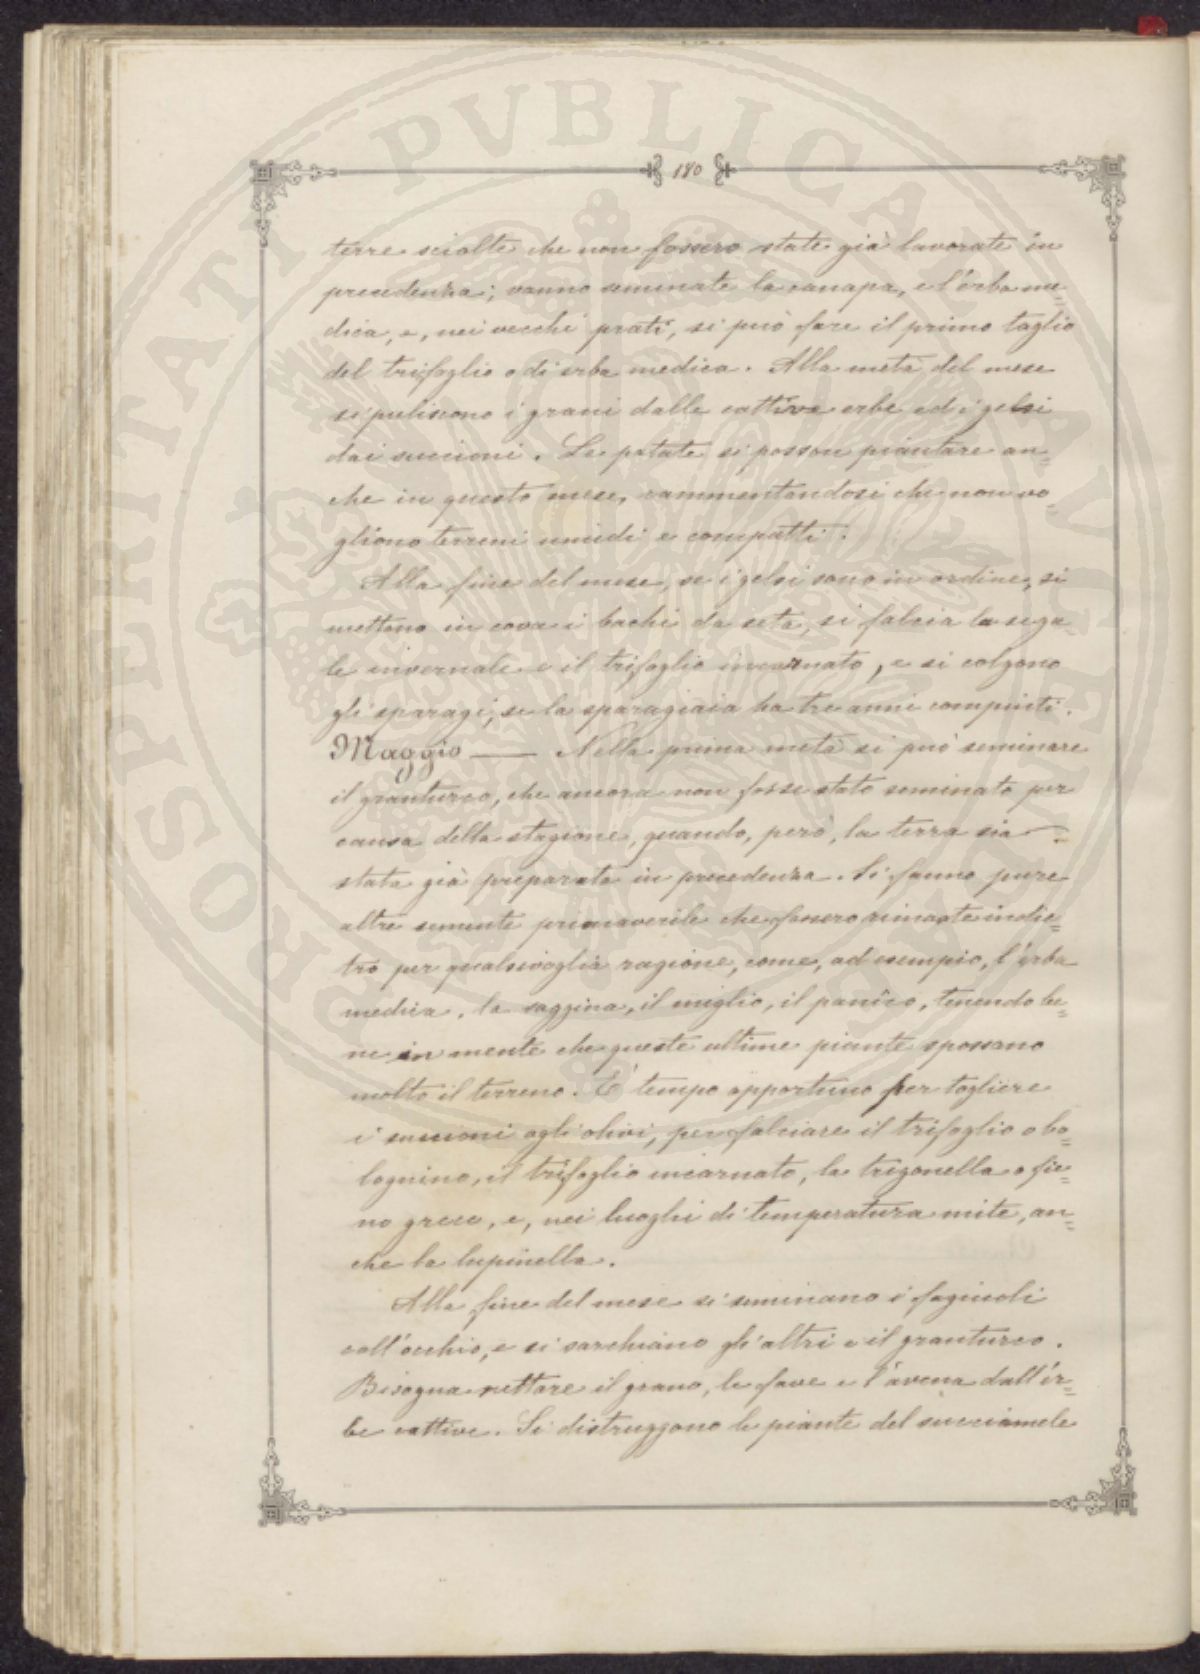 180
terre sciolte che non fossero state già lavorate in
precedenza; vanno seminate la canapa, e l'erba me=
dica, e, nei vecchi prati, si può fare il primo taglio
del trifoglio o di erba medica. Alla metà del mese
si puliscono i grani dalle cattive erbe ed i gelsi
dai succioni. Le patate si posson piantare an=
che in questo mese, rammentandosi che non vo=
gliono terreni umidi e compatti.
Alla fine del mese, se i gelsi sono in ordine, si
mettono in cova i bachi da seta, si falcia la sega=
le invernale e il trifoglio incarnato, e si colgono
gli sparagi, se la sparagiaia ha tre anni compiuti.
Maggio — Nella prima metà si può seminare
il granturco, che ancora non fosse stato seminato per
causa della stagione, quando, però, la terra sia
stata già preparata in precedenza. Si fanno pure
altre semente primaverili che fossero rimaste indie=
tro per qualsivoglia ragione, come, ad esempio, l'erba
medica, la saggina, il miglio, il panìco, tenendo be=
ne in mente che queste ultime piante spossano
molto il terreno. È tempo opportuno per togliere
i succioni agli olivi, per falciare il trifoglio o bo=
lognino, il trifoglio incarnato, la trigonella o fie=
no greco, e, nei luoghi di temperatura mite, an=
che la lupinella.
Alla fine del mese si seminano i fagiuoli
coll'occhio, e si sarchiano gli altri e il granturco.
Bisogna nettare il grano, le fave e l'avena dall'er=
be cattive. Si distruggono le piante del succiamele
PROSPERITATI PVBLICAE AVGENDAE